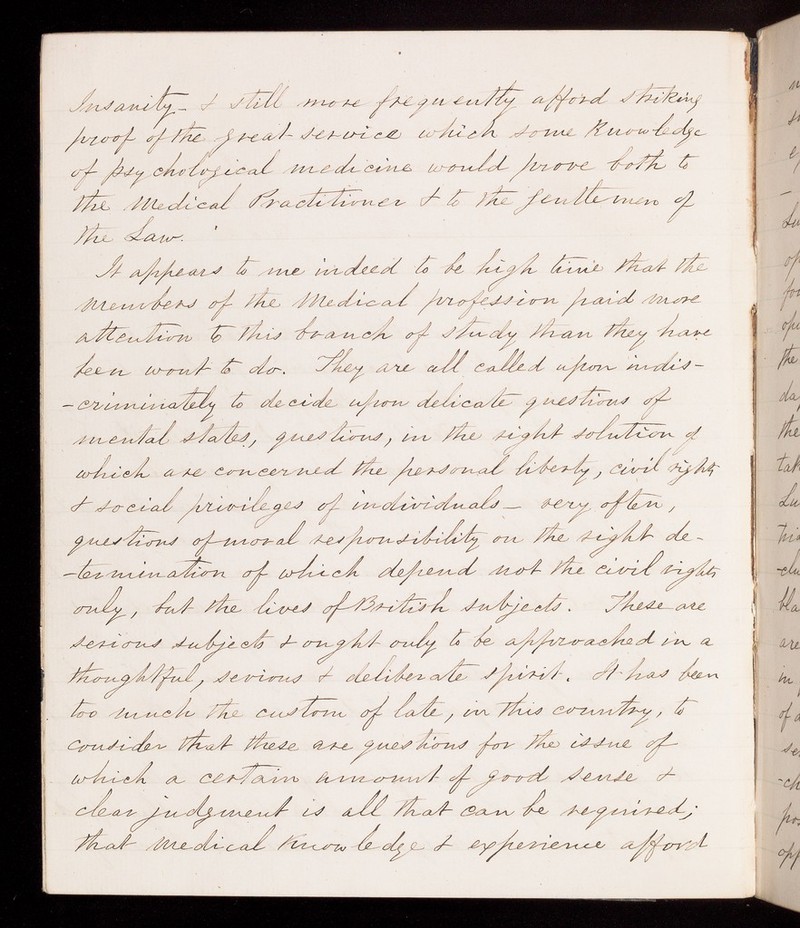 Insanity - & still more frequently afford striking
proof of the great service which some knowledge
of psychological medicine would prove both to
the Medical Practitioner & to the gentlemen of
the Law.
It appears to me indeed to be high time that the
members of the Medical profession paid more
attention to this branch of study than they have
been wont to do. They are all called upon indis-
-criminately to decide upon delicate questions of
mental states, questions, in the right solution of
which are concerned the personal liberty, civil rights
& social privileges of individuals - very often,
questions of moral responsibility on the right de-
-termination of which depend not the civil rights
only, but the lives of British subjects. These are
serious subjects & ought only to be approached in a
thoughtful, serious & deliberate spirit. It has been
too much the custom of late, in this country, to
consider that these are questions for the issue of
which a certain amount of good sense &
clear judgment is all that can be required;
that medical knowledge & experience afford